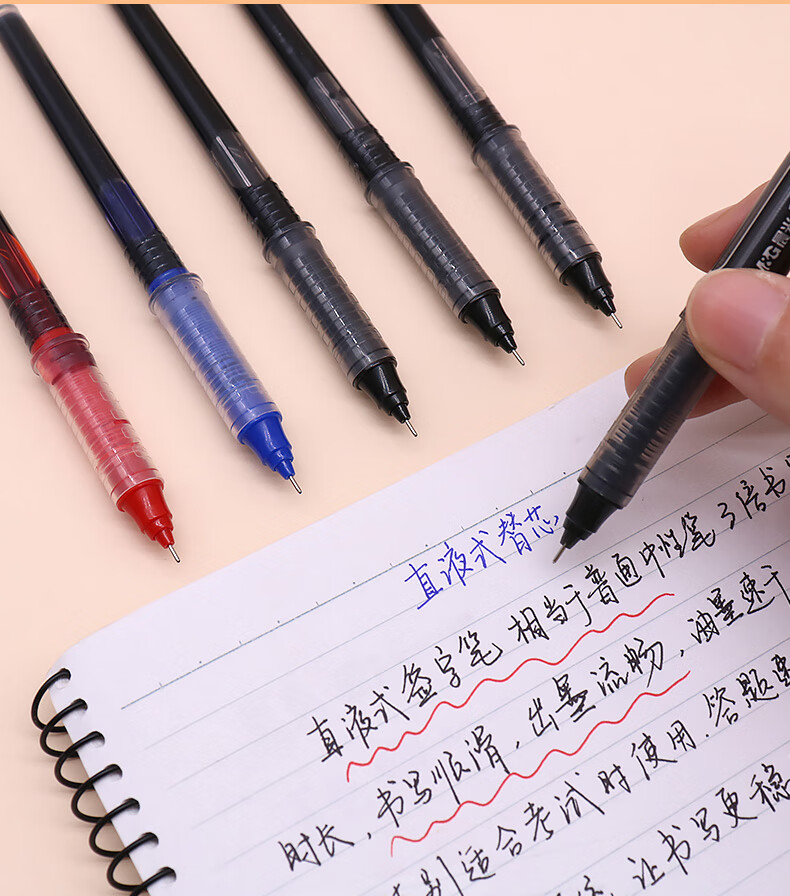 直液式替芯
直液式签字笔 相当于普通中性笔3倍书
时长,书写顺滑,出墨流畅,油墨速干
别适合考试时使用.答题
让书写更稳
&G